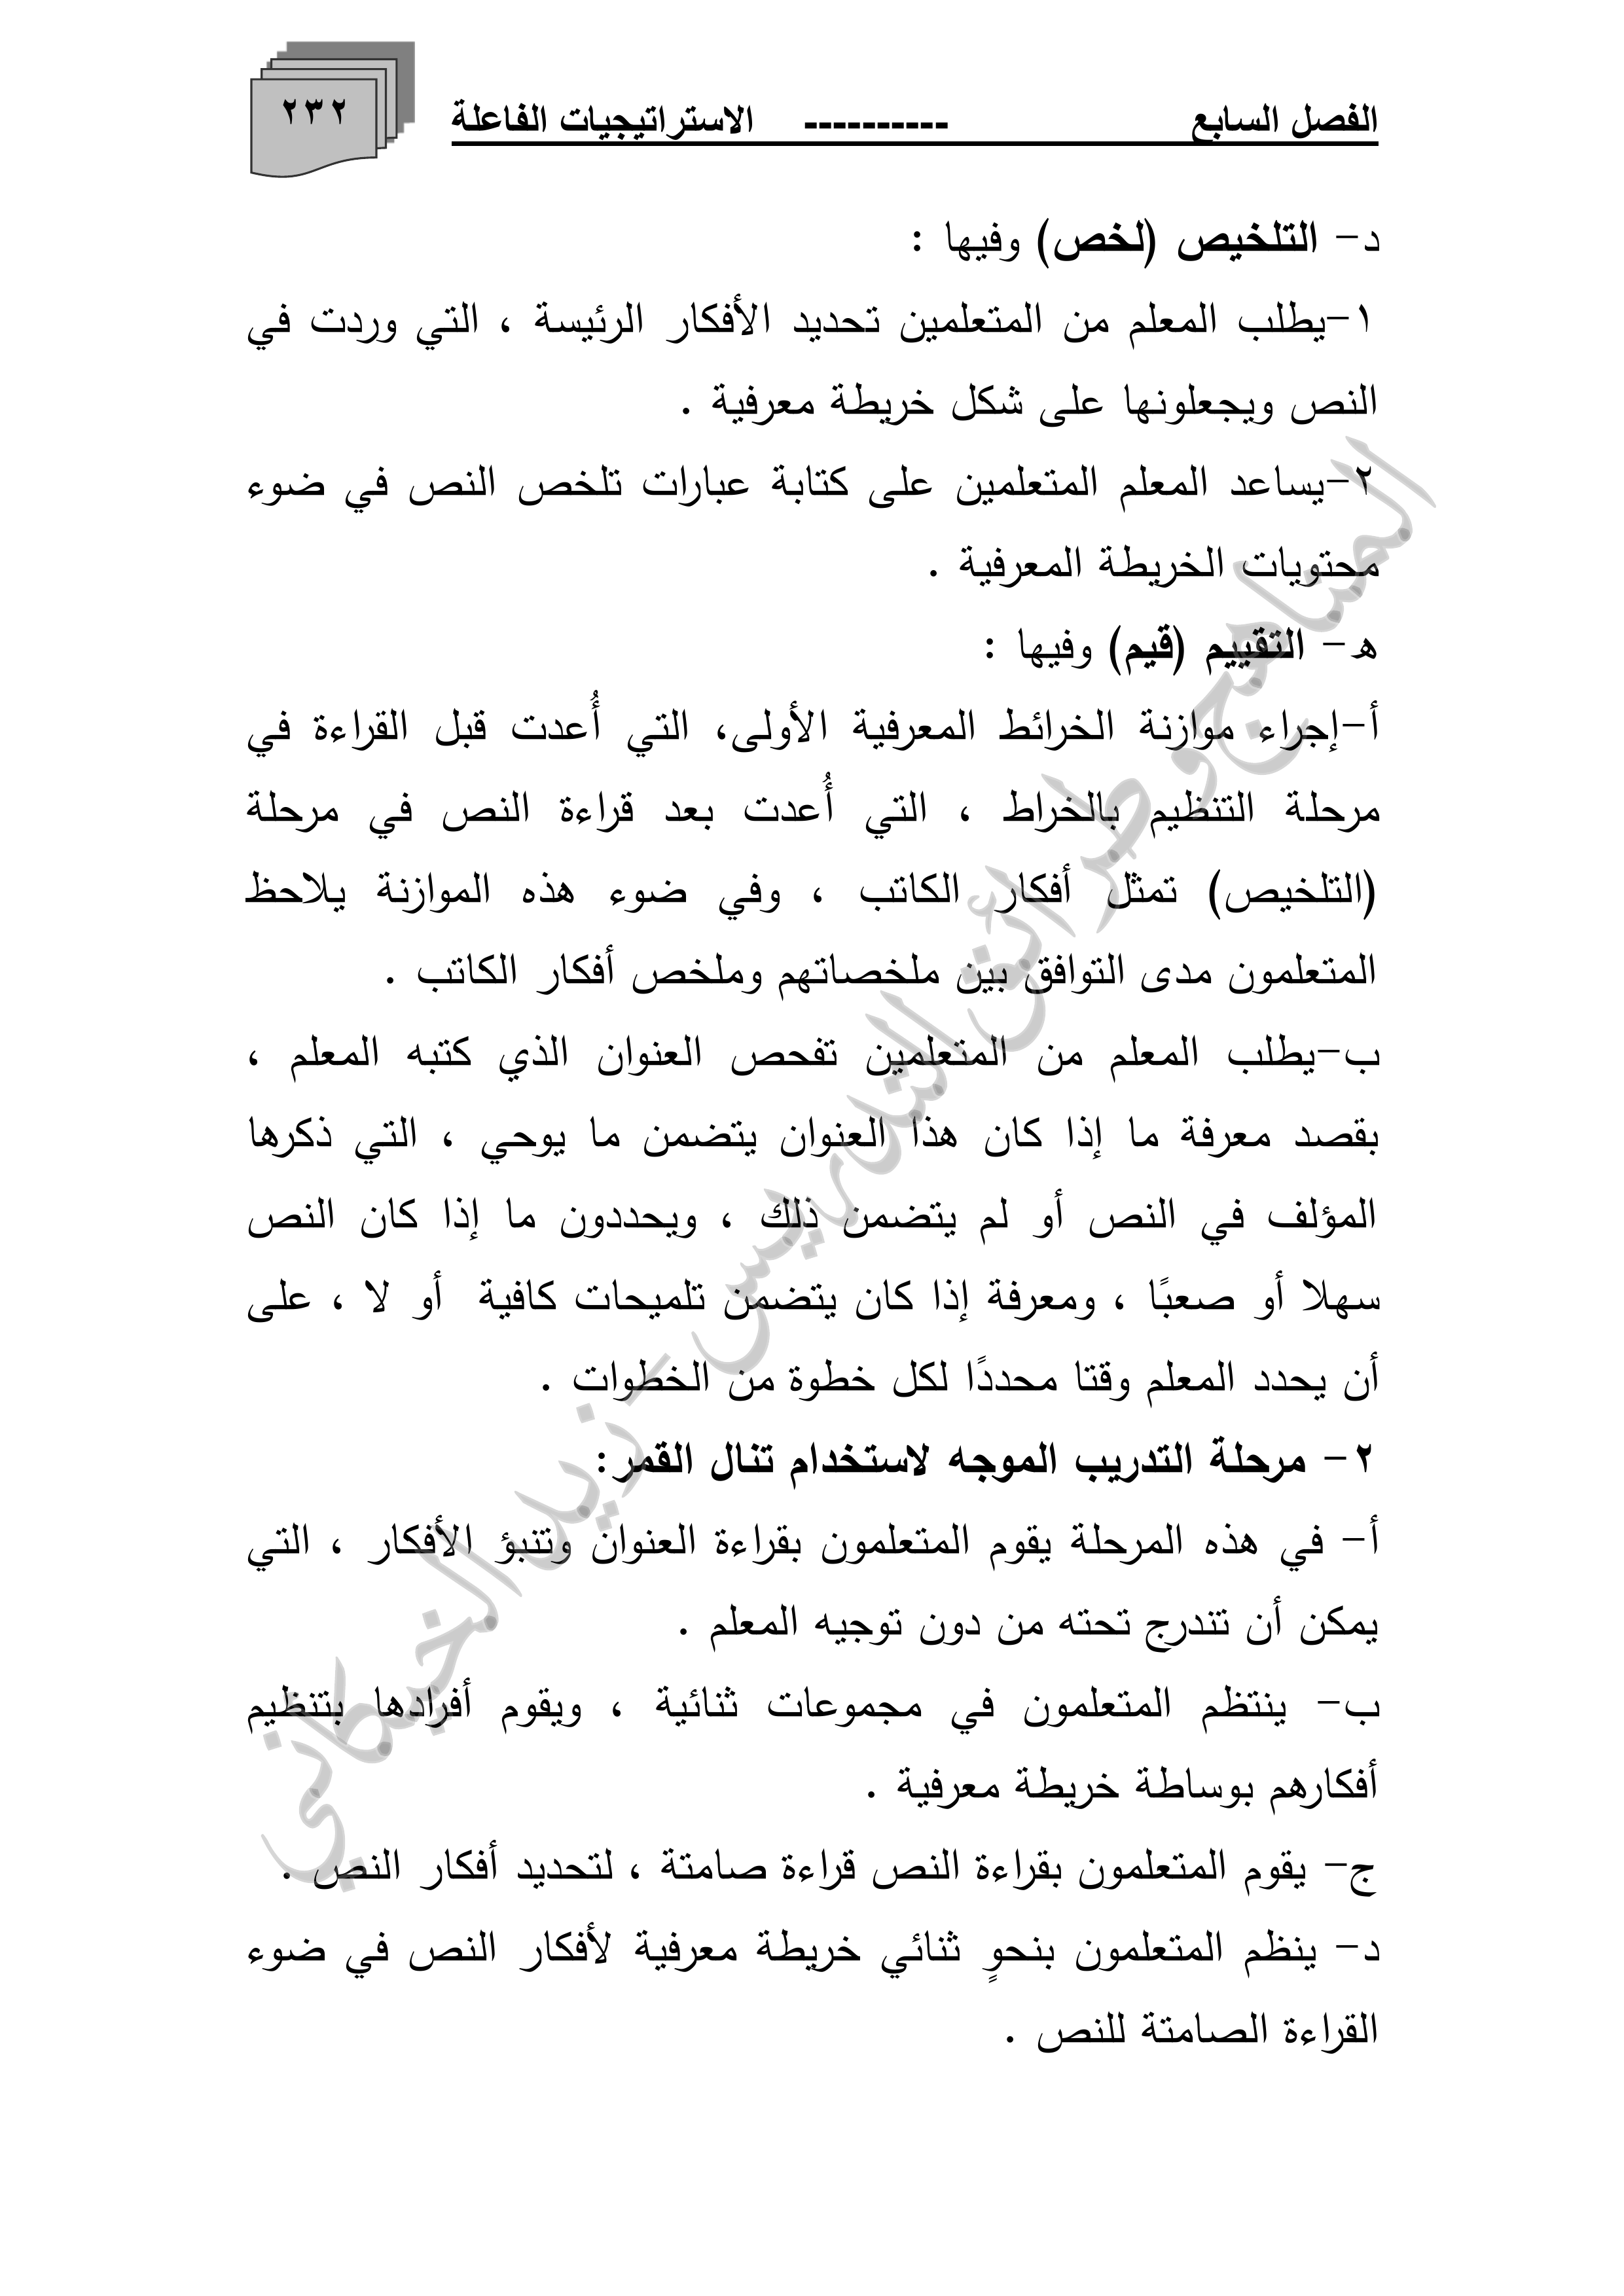 الفصل السابع ---------- الاستراتيجيات الفاعلة
٢٣٢
د- التلخيص (لخص) وفيها :
١-يطلب المعلم من المتعلمين تحديد الأفكار الرئيسة ، التي وردت في
النص ويجعلونها على شكل خريطة معرفية .
٢-يساعد المعلم المتعلمين على كتابة عبارات تلخص النص في ضوء
محتويات الخريطة المعرفية .
هـ- التقييم (قيم) وفيها :
أ-إجراء موازنة الخرائط المعرفية الأولى، التي أُعدت قبل القراءة في
مرحلة التنظيم بالخراط ، التي أُعدت بعد قراءة النص في مرحلة
(التلخيص) تمثل أفكار الكاتب ، وفي ضوء هذه الموازنة يلاحظ
المتعلمون مدى التوافق بين ملخصاتهم وملخص أفكار الكاتب .
ب-يطلب المعلم من المتعلمين تفحص العنوان الذي كتبه المعلم ،
بقصد معرفة ما إذا كان هذا العنوان يتضمن ما يوحي ، التي ذكرها
المؤلف في النص أو لم يتضمن ذلك ، ويحددون ما إذا كان النص
سهلا أو صعبًا ، ومعرفة إذا كان يتضمن تلميحات كافية أو لا ، على
أن يحدد المعلم وقتا محددًا لكل خطوة من الخطوات .
٢- مرحلة التدريب الموجه لاستخدام تنال القمر:
أ- في هذه المرحلة يقوم المتعلمون بقراءة العنوان وتنبؤ الأفكار ، التي
يمكن أن تندرج تحته من دون توجيه المعلم .
ب- ينتظم المتعلمون في مجموعات ثنائية ، ويقوم أفرادها بتنظيم
أفكارهم بوساطة خريطة معرفية .
ج- يقوم المتعلمون بقراءة النص قراءة صامتة ، لتحديد أفكار النص .
د- ينظم المتعلمون بنحوٍ ثنائي خريطة معرفية لأفكار النص في ضوء
القراءة الصامتة للنص .
المناهج وطرائق التدريس - زيد الخيكاني